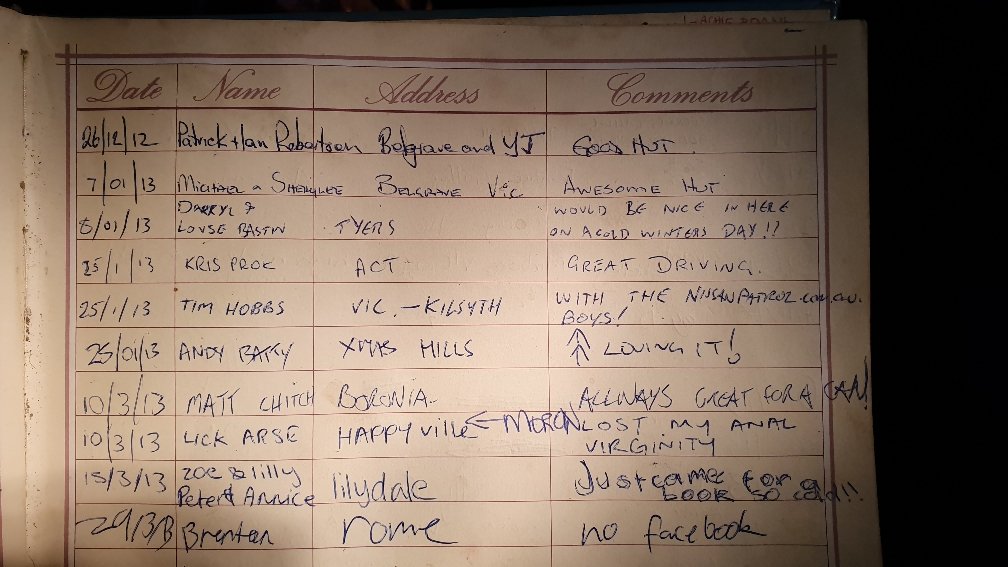 Date Name Address Comments
26/12/12 Patrick + Ian Robertson Belgrave and YJ GOOD HUT.
7/01/13 MICHAEL & SHERYLEE BELGRAVE VIC AWESOME HUT
DARRYL &
LOUSE BASTIN
6/01/13 TYERS
WOULD BE NICE IN HERE
ON A COLD WINTERS DAY!!
25/1/13 KRIS PROK ACT GREAT DRIVING.
25/1/13 TIM HOBBS VIC. - KILSYTH
WITH THE NISSANPATROL.com.au.
BOYS!
25/01/13 ANDY XMAS HILLS LOVING IT!
10/3/13 MATT CHITCH BORONIA. ALLWAYS GREAT FOR A CAN!
10/3/13 LICK ARSE HAPPYville ← MORON
LOST MY ANAL
VIRGINITY
15/3/13 zoe & lilly
Peter & Annice
lilydale
Just came for
book so cold!!
29/3/13 Brenten rome no facebook